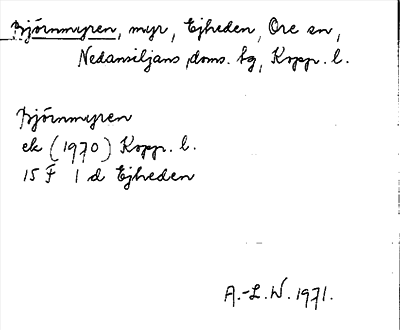 Björnmyren, myr, Ejheden, Ore sn,
Nedansiljans doms. bg, Kopp. l.
Björnmyren
ek (1970) Kopp. l.
15 F 1 d Ejheden
A.-L. W. 1971.